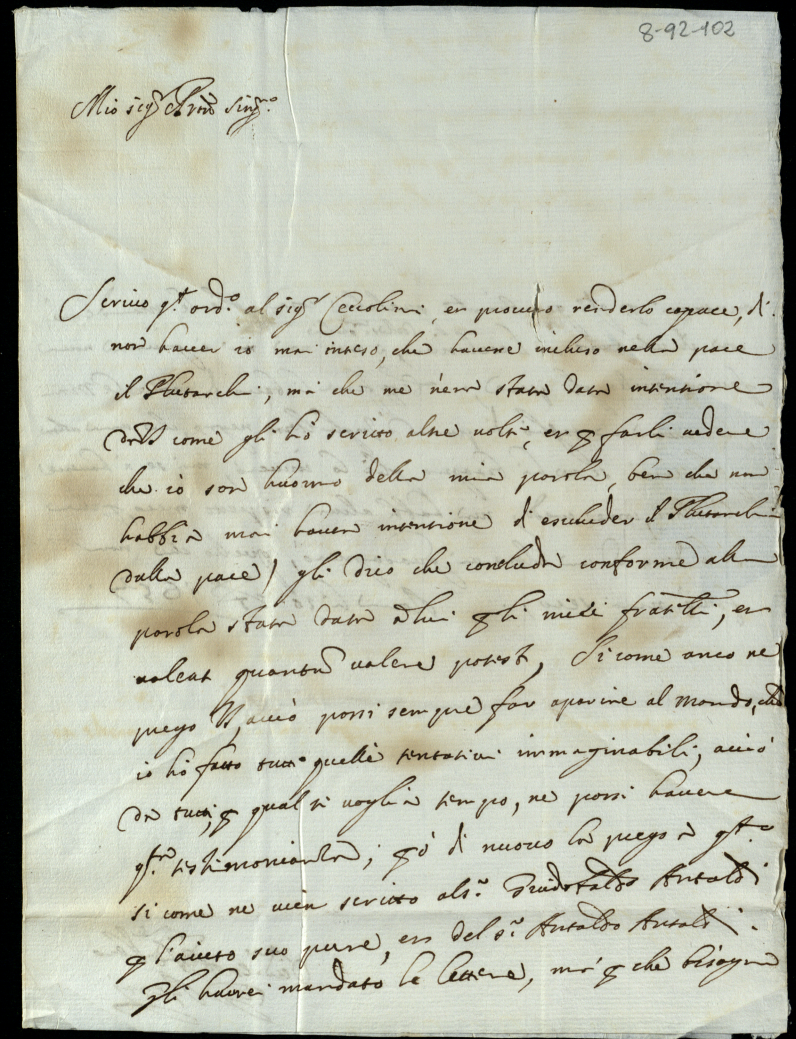 8-92-102
Mio sig.r Pron sing.mo
Scrivo q.to ord.o al sig.r Ceccolini, et procuro renderlo capace, di
non haver io mai inteso, che havere incluso nella pace
il Plutarchi, mà che me n'era stata data intentione
come gli hò scritto altre volte, et p farli vedere
che io son huomo della mia parola, ben che non
habbia mai havuta intentione di escluder il Plutarchi
dalla pace / gli dico che concluda conforme alla
parola stata data a lui p li miei fratelli, et
valeat quantum valere potest, Si come anco ne
prego acciò possi sempre far aparire al mondo, che
io hò fatto tutti quelle tentativi immaginabili, acciò
da tutti, p qual si voglia tempo, ne possi havere
q.ta testimonianza; p ò di nuovo la prego a q.to
si come ne vien scritto al s.r Guidobaldo Antaldi
p l'aiuto suo pure, et del s.r Antaldo Antaldi.
gli haverei mandato le lettere, mà p che bisogna